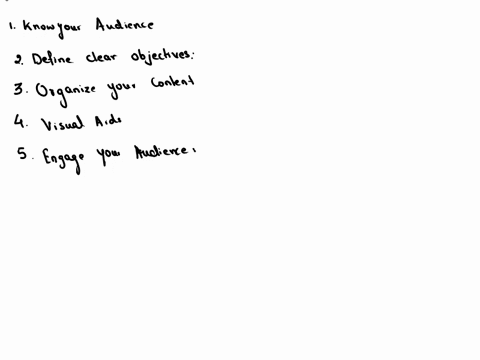 1. Know your Audience
2. Define clear objectives:
3. Organize your Content
4. Visual Aids
5. Engage your Audience: